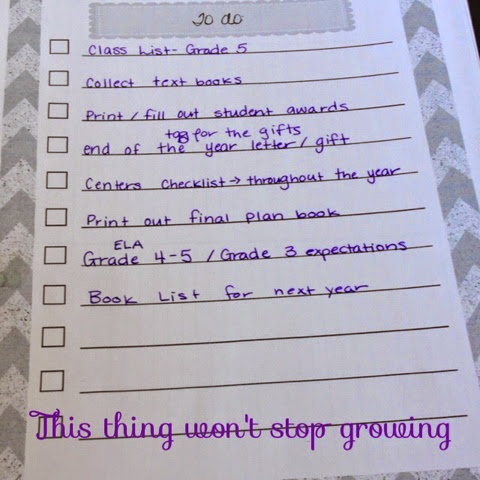 To do
Class List- Grade 5
Collect text books
Print/fill out student awards
tags for the gifts
end of the year letter/gift
Centers Checklist → throughout the year
Print out final plan book
ELA
Grade 4-5 / Grade 3 expectations
Book List for next year
This thing won't stop growing